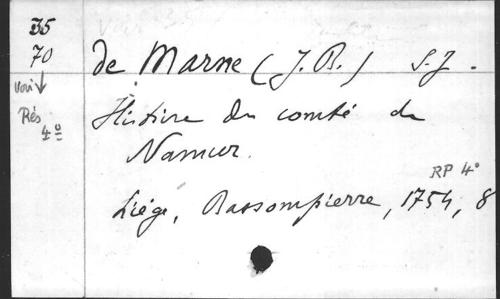 35
70
voir ↓
Rés
4º
de Marne (J. B.) S. J.
Histoire du comté de
Namur.
RP 4º
Liége, Bassompierre, 1754, 8